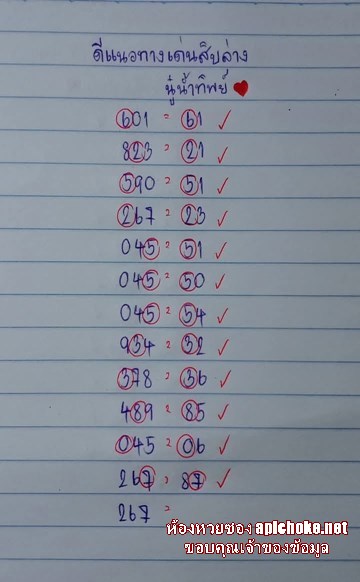 ดีแนวทางเด่นสิบล่าง
นู๋น้ำทิพย์
601 = 61 ✓
823 = 21 ✓
590 = 51 ✓
267 = 23 ✓
045 = 51 ✓
045 = 50 ✓
045 = 54 ✓
934 = 32 ✓
378 = 36 ✓
489 = 85 ✓
045 = 06 ✓
267 = 87 ✓
267 =
ห้องหวยซอง apichoke.net
ขอบคุณเจ้าของข้อมูล